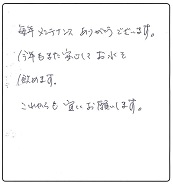 毎年メンテナンスありがとうございます。
今年もまた安心してお水を
飲めます。
これからも宜しくお願いします。